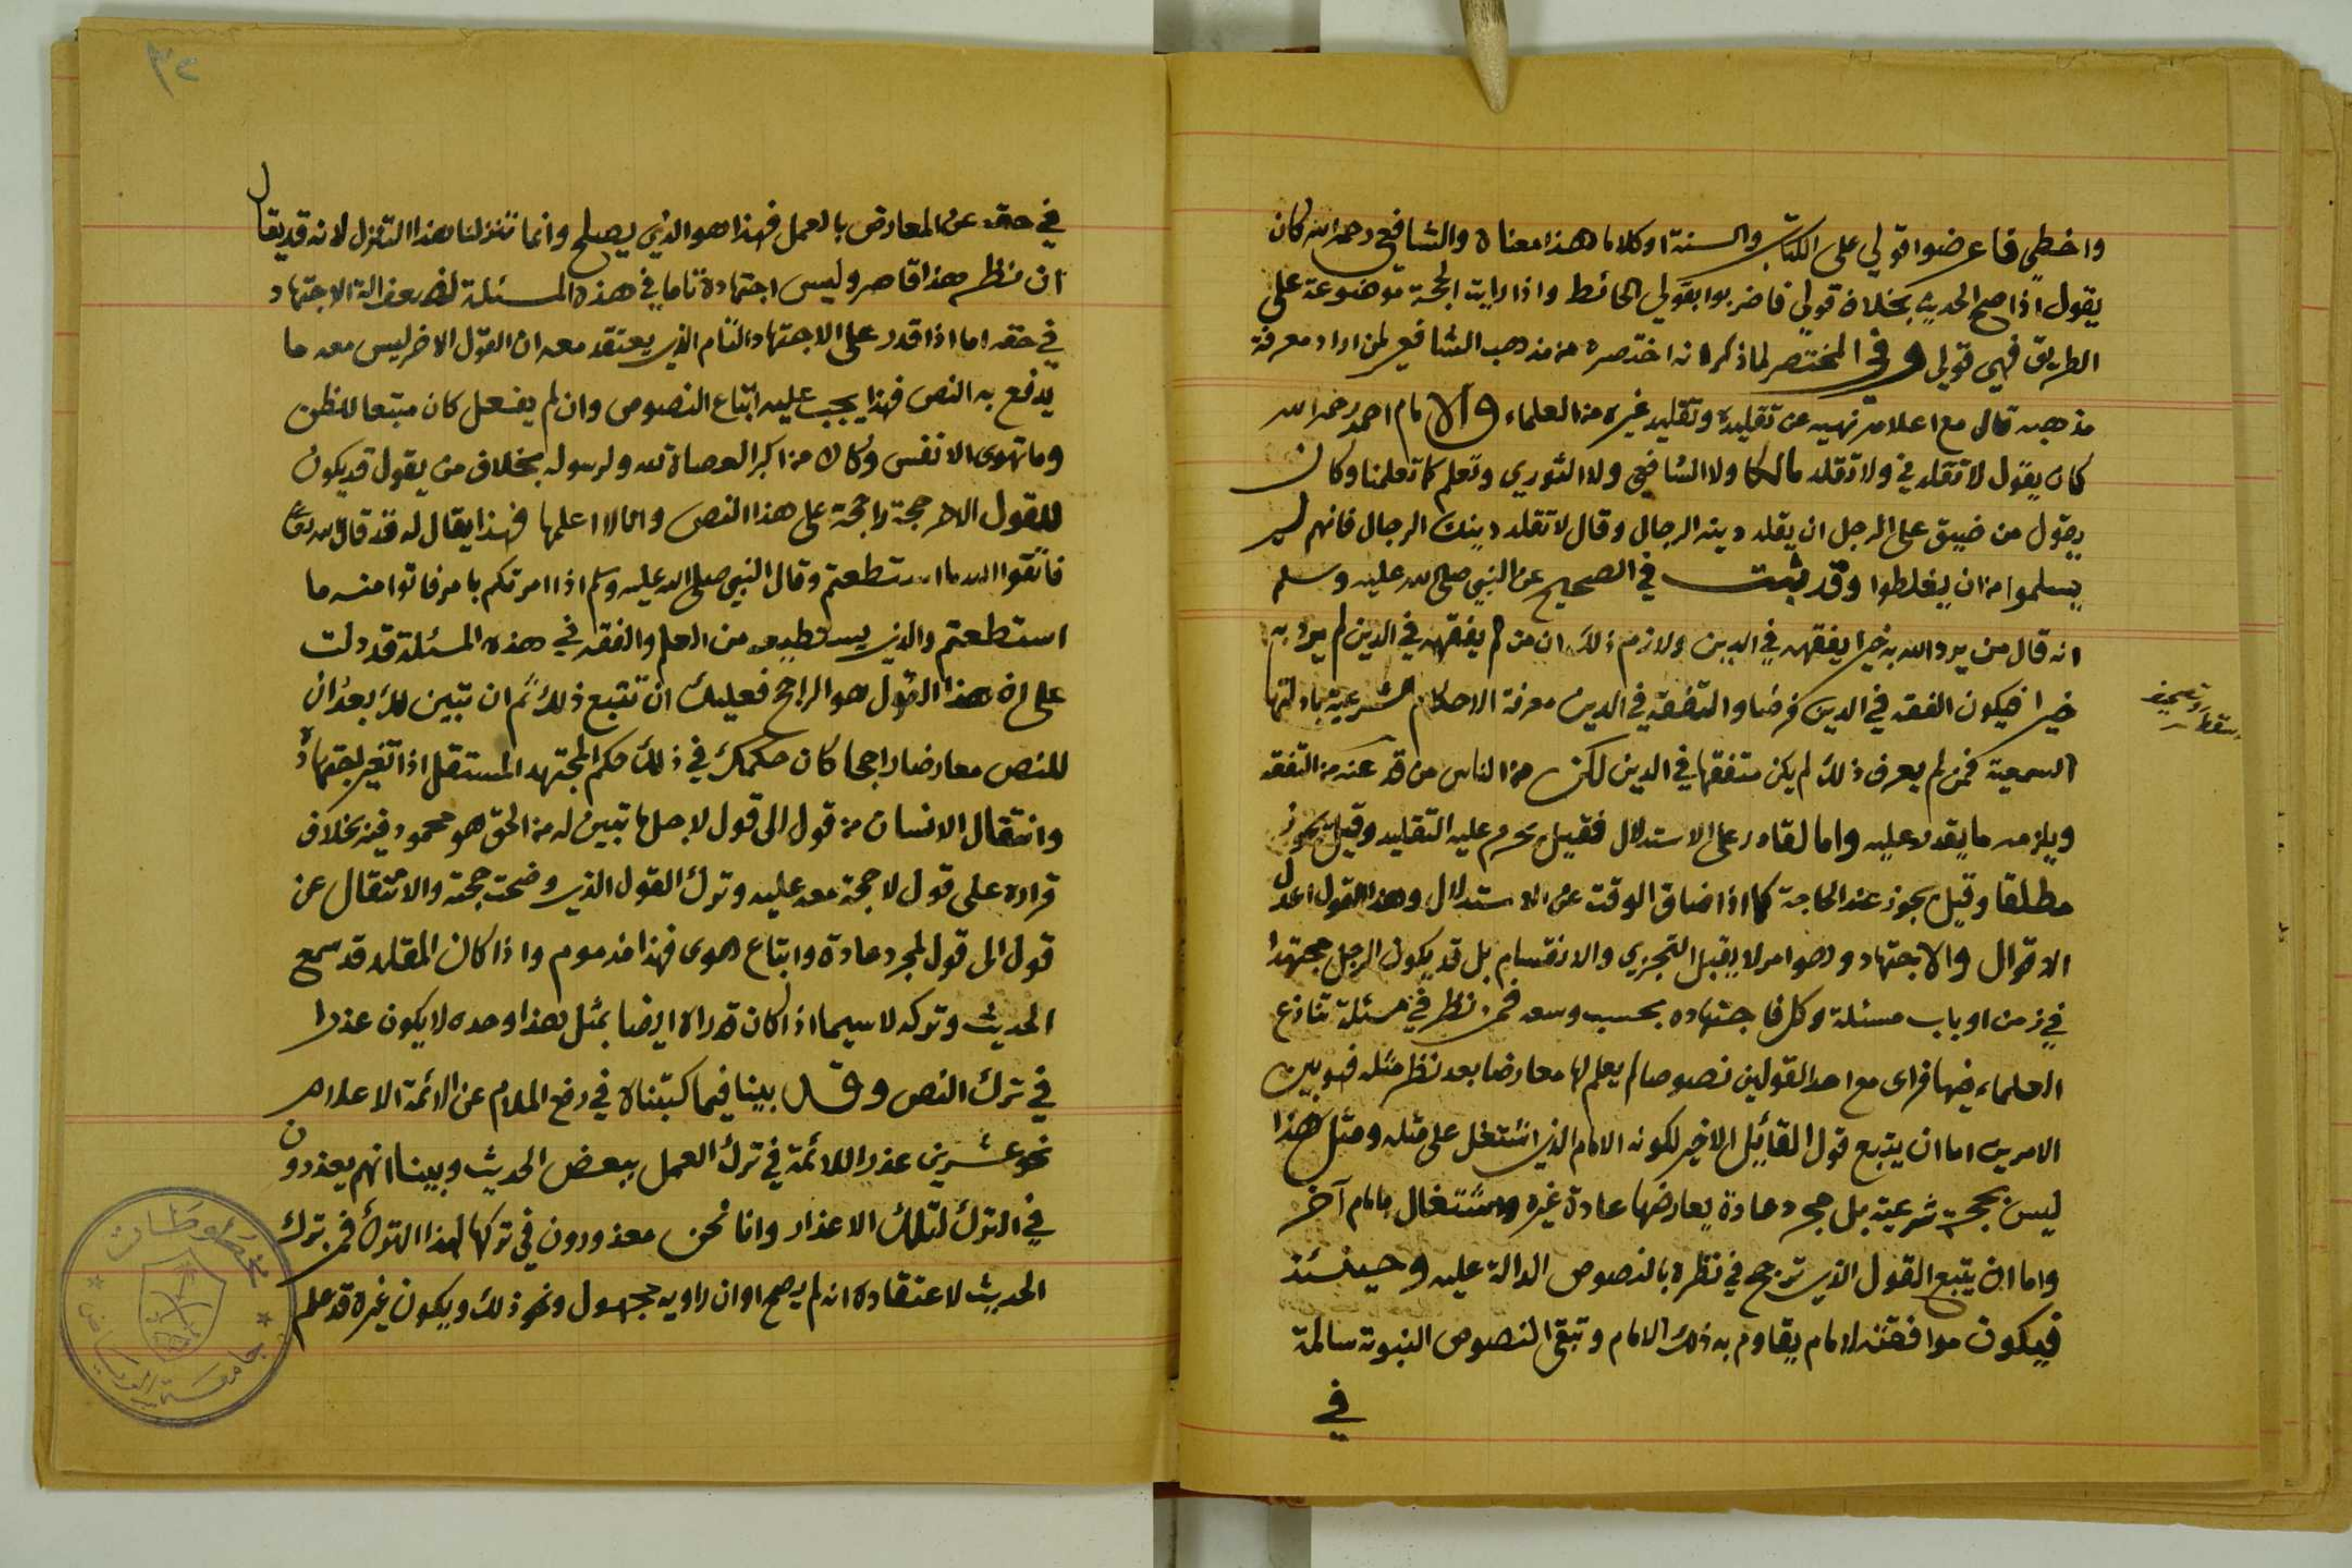 واخطي فاعرضوا قولي على الكتاب والسنة او كلاما هذا معناه والشافعي رحمه الله كان
يقول اذا صح الحديث بخلاف قولي فاضربوا بقولي الحائط واذا رايت الحجة موضوعة على
الطريق فهي قولي وفي المختصر لما ذكر انه اختصره من مذهب الشافعي لمن اراد معرفة
مذهبه قال مع اعلامه نهيه عن تقليده وتقليد غيره من العلماء والامام احمد رحمه الله
كان يقول لا تقلدني ولا تقلد مالكا ولا الشافعي ولا الثوري وتعلم كما تعلمنا وكان
يقول من ضيق على الرجل ان يقلد دينه الرجال وقال لا تقلد دينك الرجال فانهم لم
يسلموا من ان يغلطوا وقد ثبت في الصحيح عن النبي صلى الله عليه وسلم
انه قال من يرد الله به خيرا يفقهه في الدين ولازم ذلك ان من لم يفقهه في الدين لم يرد به
خيرا فيكون الفقه في الدين فرضا والتفقه في الدين معرفة الاحكام الشرعية بادلتها
السمعية فمن لم يعرف ذلك لم يكن متفقها في الدين لكن من الناس من قد عنه من التفقه
ويلزمه ما يقدر عليه واما لقادر على الاستدلال فقيل يحرم عليه التقليد وقيل يجوز
مطلقا وقيل يجوز عند الحاجة كما اذا ضاق الوقت عن الاستدلال وهذا القول اعدل
الاقوال والاجتهاد وهو امر لا يقبل التجزي والانقسام بل قد يكون الرجل مجتهدا
في زمن او باب مسئلة وكل فاجتهاده بحسب وسعه فمن نظر في مسئلة تنازع
العلماء فيها فراى مع احد القولين نصوصا لم يعلم لها معارضا بعد نظر مثله فهو بين
الامرين اما ان يتبع قول القائل الاخير لكونه الامام الذي اشتغل على مثله ومثل هذا
ليس بحجة شرعية بل مجرد عادة يعارضها عادة غيره واشتغال بامام آخر
واما ان يتبع القول الذي ترجح في نظره بالنصوص الدالة عليه وحينئذ
فيكون موافقته لامام يقاوم به ذلك الامام وتبقى النصوص النبوية سالمة
في
في حقه عن المعارض بالعمل فهذا هو الذي يصلح وانما تنزلنا هذا التنزل لانه قد يقال
ان نظر هذا قاصر وليس اجتهاده تاما في هذه المسئلة لضعف الة الاجتهاد
في حقه اما اذا قدر على الاجتهاد التام الذي يعتقد معه ان القول الاخر ليس معه ما
يدفع به النص فهذا يجب عليه اتباع النصوص وان لم يفعل كان متبعا للظن
وما تهوى الانفس وكان من اكبر العصاة لله ولرسوله بخلاف من يقول قد يكون
للقول الاخر حجة راجحة على هذا النص وانا لا اعلمها فهذا يقال له قد قال الله تعالى
فاتقوا الله ما استطعتم وقال النبي صلى الله عليه وسلم اذا امرتكم بامر فاتوا منه ما
استطعتم والذي يستطيعه من العلم والفقه في هذه المسئلة قد دلت
على ان هذا القول هو الراجح فعليك ان تتبع ذلك ثم ان تبين لك بعد ان
للنص معارضا راجحا كان حكمك في ذلك حكم المجتهد المستقل اذا تغير اجتهاده
وانتقال الانسان من قول الى قول لاجل ما تبين له من الحق هو محمود فيه بخلاف
قراره على قول لا حجة معه عليه وترك القول الذي وضحت حجته والانتقال عن
قول الى قول لمجرد عادة واتباع هوى فهذا مذموم واذا كان المقلد قد سمع
الحديث وتركه لا سيما اذا كان قد راه ايضا بمثل هذا وحده لا يكون عذرا
في ترك النص وقد بينا فيما كتبناه في رفع الملام عن الائمة الاعلام
نحو عشرين عذرا للائمة في ترك العمل ببعض الحديث وبينا انهم يعذرون
في الترك لتلك الاعذار وانا نحن معذورون في تركها لهذا الترك فمن ترك
الحديث لاعتقاده انه لم يصح او ان راويه مجهول ونحو ذلك ويكون غيره قد علم
مخطوطات
جامعة الرياض